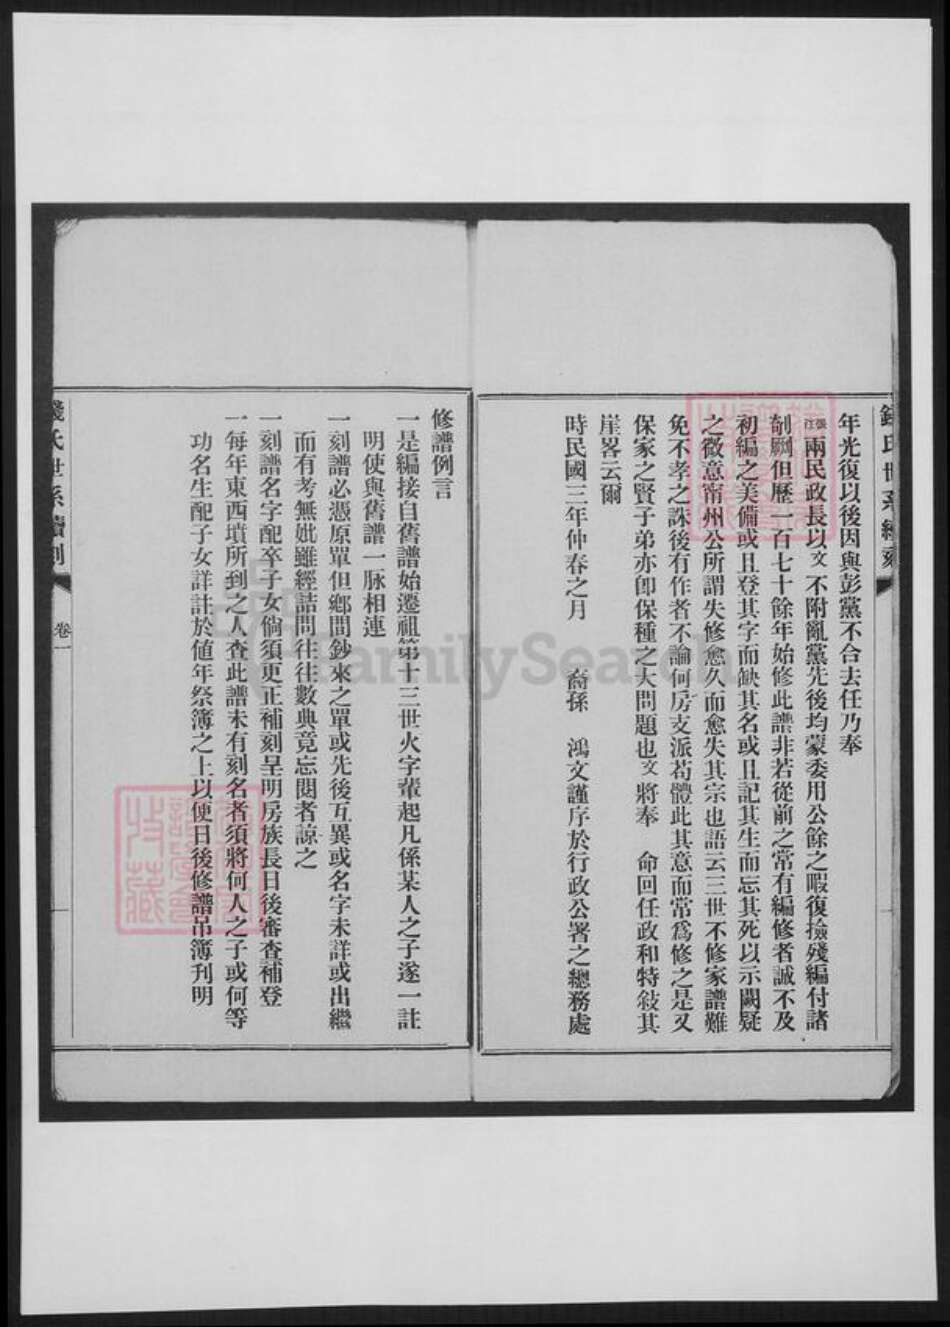 年光復以後因與彭黨不合去任乃奉
張汪兩民政長以文不附亂黨先後均蒙委用公餘之暇復撿殘編付諸
剞劂但歷一百七十餘年始修此譜非若從前之常有編修者誠不及
初編之美備或且登其字而缺其名或且記其生而忘其死以示闕疑
之微意甯州公所謂失修愈久而愈失其宗也語云三世不修家譜難
免不孝之誅後有作者不論何房支派苟體此其意而常爲修之是又
保家之賢子弟亦卽保種之大問題也文將奉 命回任政和特敍其
崖畧云爾
時民國三年仲春之月 裔孫 鴻文謹序於行政公署之總務處
修譜例言
一是編接自舊譜始遷祖第十三世火字輩起凡係某人之子遂一註
明使與舊譜一脉相連
一刻譜必憑原單但鄕間鈔來之單或先後互異或名字未詳或出繼
而有考無妣雖經詰問往往數典竟忘閱者諒之
一刻譜名字配卒子女倘須更正補刻呈明房族長日後審查補登
一每年東西墳所到之人查此譜未有刻名者須將何人之子或何等
功名生配子女詳註於値年祭簿之上以便日後修譜吊簿刋明
錢氏世系續刻
卷一
FamilySearch